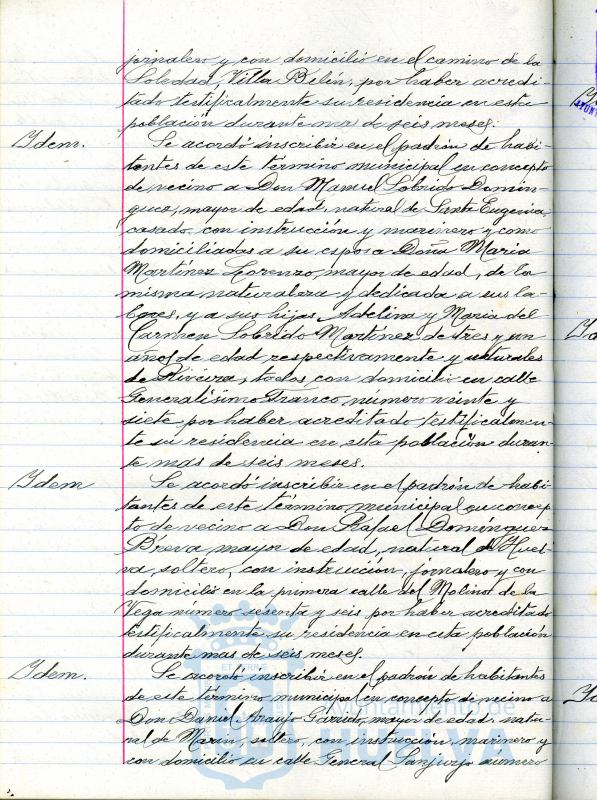 jornalero y con domicilio en el camino de la
Soledad, Villa Belén, por haber acredi-
tado testificalmente su residencia en esta
población durante mas de seis meses.
Idem. Se acordó inscribir en el padrón de habi-
tantes de este término municipal en concepto
de vecino a Don Manuel Lobrido Domin-
guez, mayor de edad, natural de Santa Eugenia,
casado, con instrucción y marinero y como
domiciliadas a su esposa Doña Maria
Martínez Lorenzo, mayor de edad, de la
misma naturaleza y dedicada a sus la-
bores, y a sus hijas Adelina y Maria del
Carmen Lobrido Martínez de tres y un
años de edad respectivamente y naturales
de Riveira, todos, con domicilio en calle
Generalísimo Franco, número veinte y
siete por haber acreditado testificalmen-
te su residencia en esta población duran-
te mas de seis meses.
Idem Se acordó inscribir en el padrón de habi-
tantes de este término municipal en concep-
to de vecino a Don Rafael Domínguez
Breva mayor de edad, natural de Huel-
va, soltero, con instrucción, jornalero y con
domicilio en la primera calle del Molino de la
Vega número sesenta y seis por haber acreditado
testificalmente su residencia en esta población
durante mas de seis meses.
Idem. Se acordó inscribir en el padrón de habitantes
de este término municipal en concepto de vecino a
Don Daniel Araujo Garrido, mayor de edad, natu-
ral de Marín, soltero, con instrucción, marinero y
con domicilio en calle General Sanjurjo número
Ayuntamiento de
HUELVA